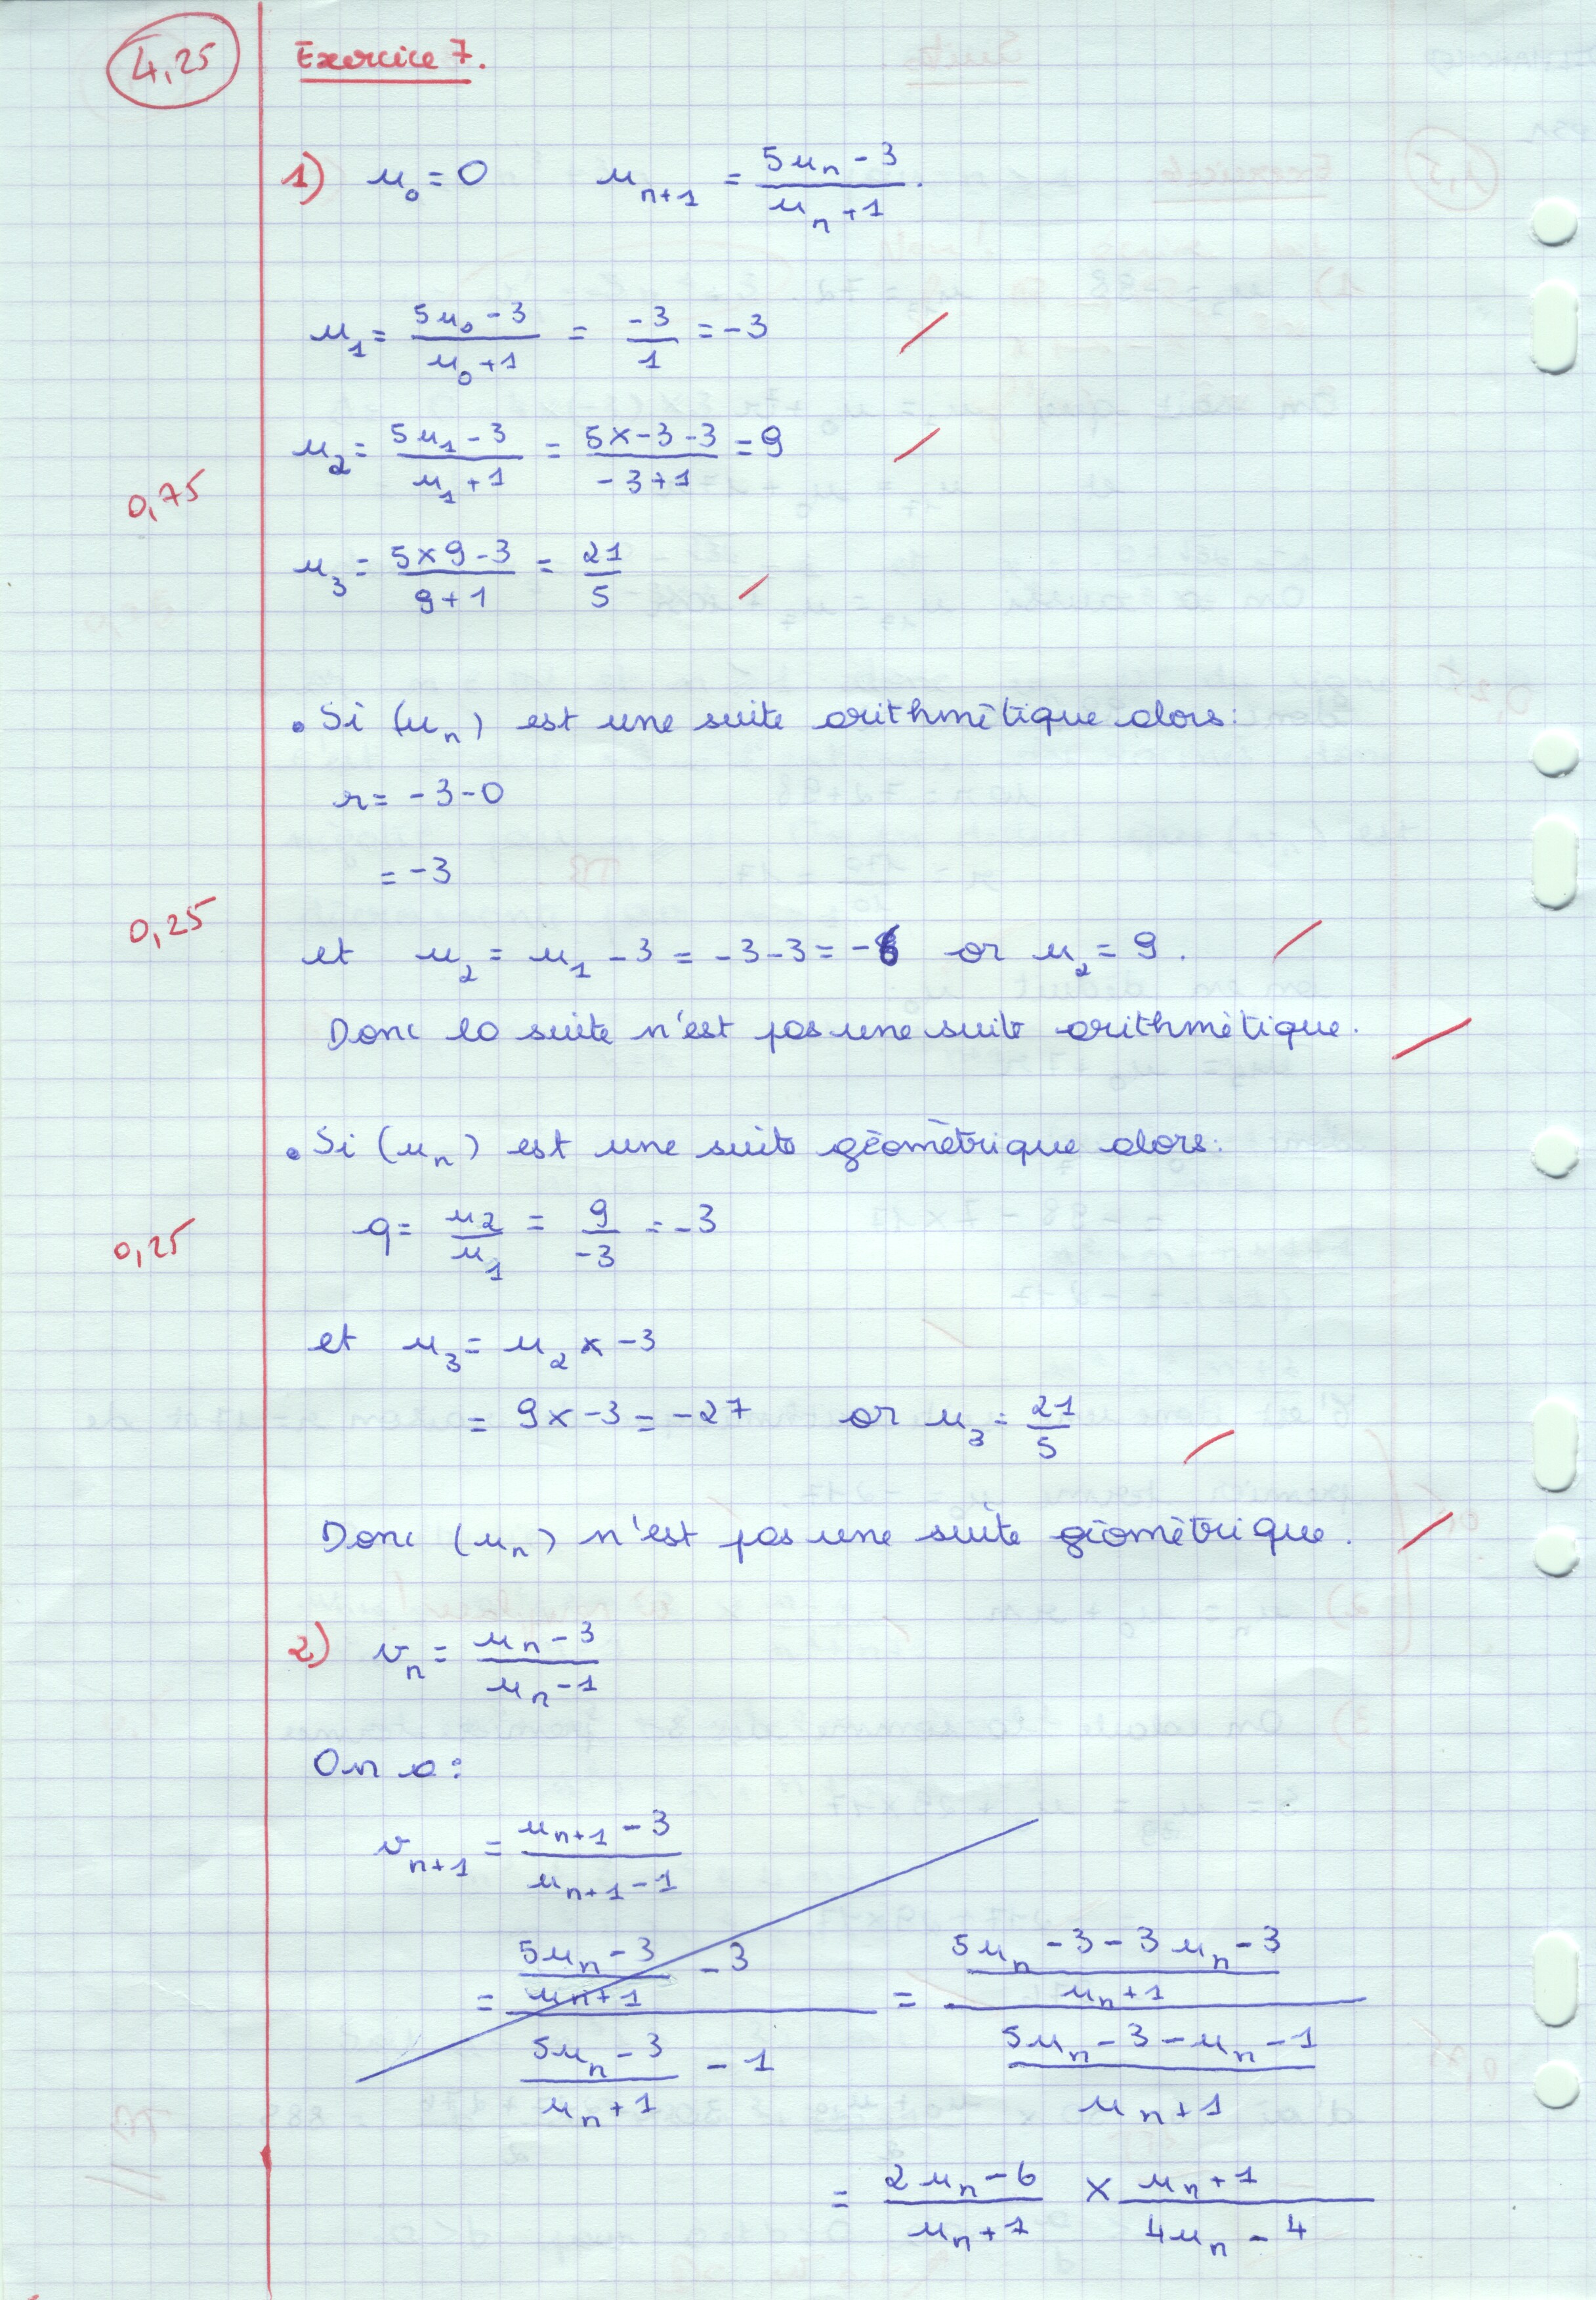 4,25
Exercice 7.
1) u₀ = 0 uₙ₊₁ = (5uₙ - 3)/(uₙ + 1).
u₁ = (5u₀ - 3)/(u₀ + 1) = -3/1 = -3
u₂ = (5u₁ - 3)/(u₁ + 1) = (5 x -3 - 3)/(-3 + 1) = 9
0,75
u₃ = (5 x 9 - 3)/(9 + 1) = 21/5
• Si (uₙ) est une suite arithmétique alors:
r = -3 - 0
= -3
0,25
et u₂ = u₁ - 3 = -3 - 3 = -6 or u₂ = 9.
Donc la suite n'est pas une suite arithmétique.
• Si (uₙ) est une suite géométrique alors:
0,25
q = u₂/u₁ = 9/-3 = -3
et u₃ = u₂ x -3
= 9 x -3 = -27 or u₃ = 21/5
Donc (uₙ) n'est pas une suite géométrique.
2) vₙ = (uₙ - 3)/(uₙ - 1)
On a:
vₙ₊₁ = (uₙ₊₁ - 3)/(uₙ₊₁ - 1)
= ((5uₙ - 3)/(uₙ + 1) - 3)/((5uₙ - 3)/(uₙ + 1) - 1) = ((5uₙ - 3 - 3uₙ - 3)/(uₙ + 1))/((5uₙ - 3 - uₙ - 1)/(uₙ + 1))
= (2uₙ - 6)/(uₙ + 1) x (uₙ + 1)/(4uₙ - 4)